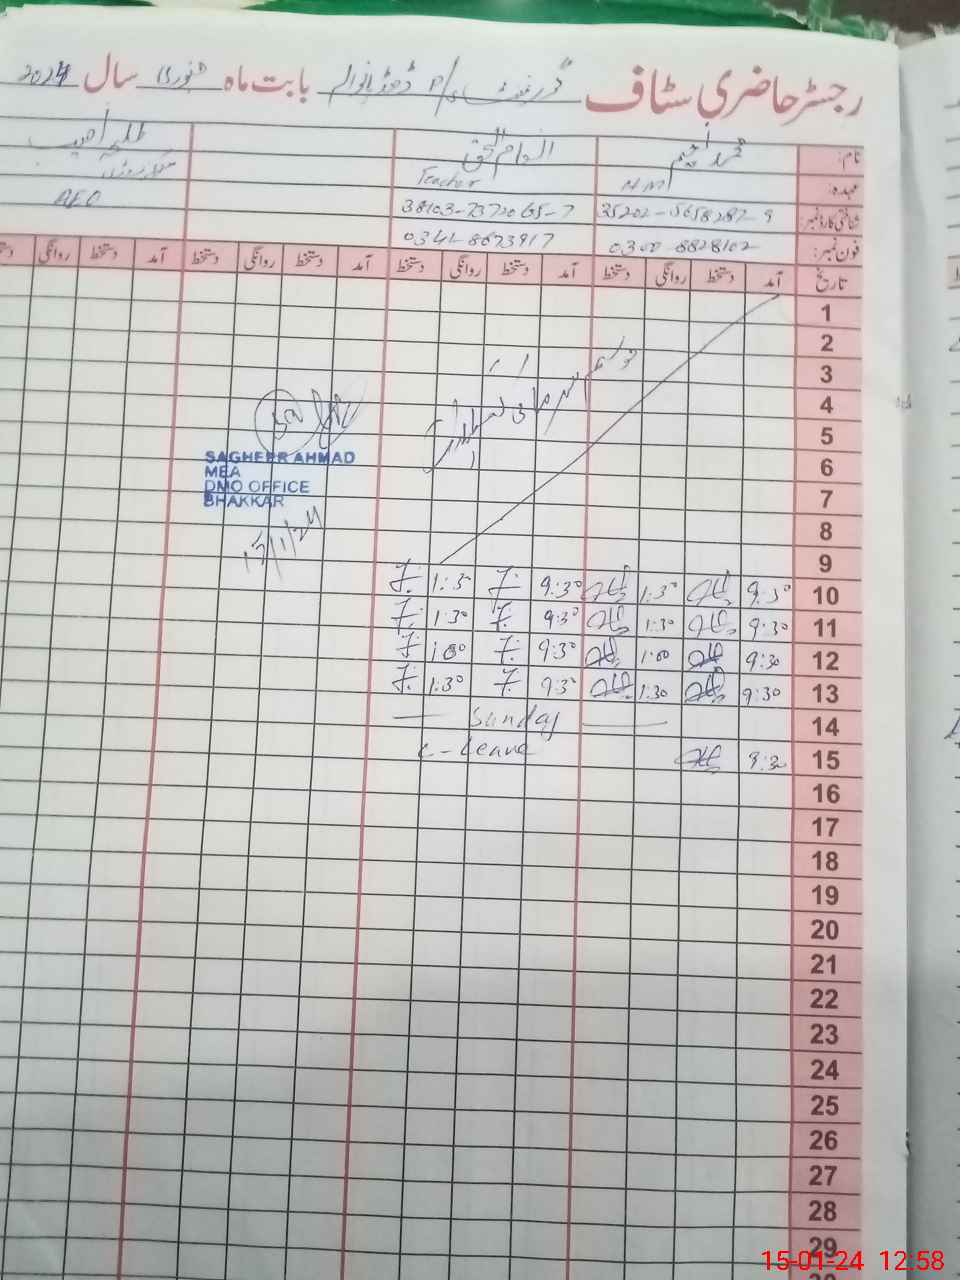 رجسٹر حاضری سٹاف بابت ماہ جنوری سال 2024
نام: محمد
عہدہ: HM Teacher AEO
شناختی کارڈ نمبر: 35202-5658287-9 38103-7372065-7
فون نمبر: 0300-8828102 0341-8673917
تاریخ آمد دستخط روانگی دستخط آمد دستخط روانگی دستخط آمد دستخط روانگی دستخط آمد دستخط روانگی
1
2
3
4
5
6
7
8
9
10 9:30 1:30 9:30 1:30
11 9:30 1:30 9:30 1:30
12 9:30 1:00 9:30 1:00
13 9:30 1:30 9:30 1:30
14 Sunday
15 9:30 C-Leave
16
17
18
19
20
21
22
23
24
25
26
27
28
29
SAGHEER AHMAD
MEA
DMO OFFICE
BHAKKAR
15/1/24
15-01-24 12:58